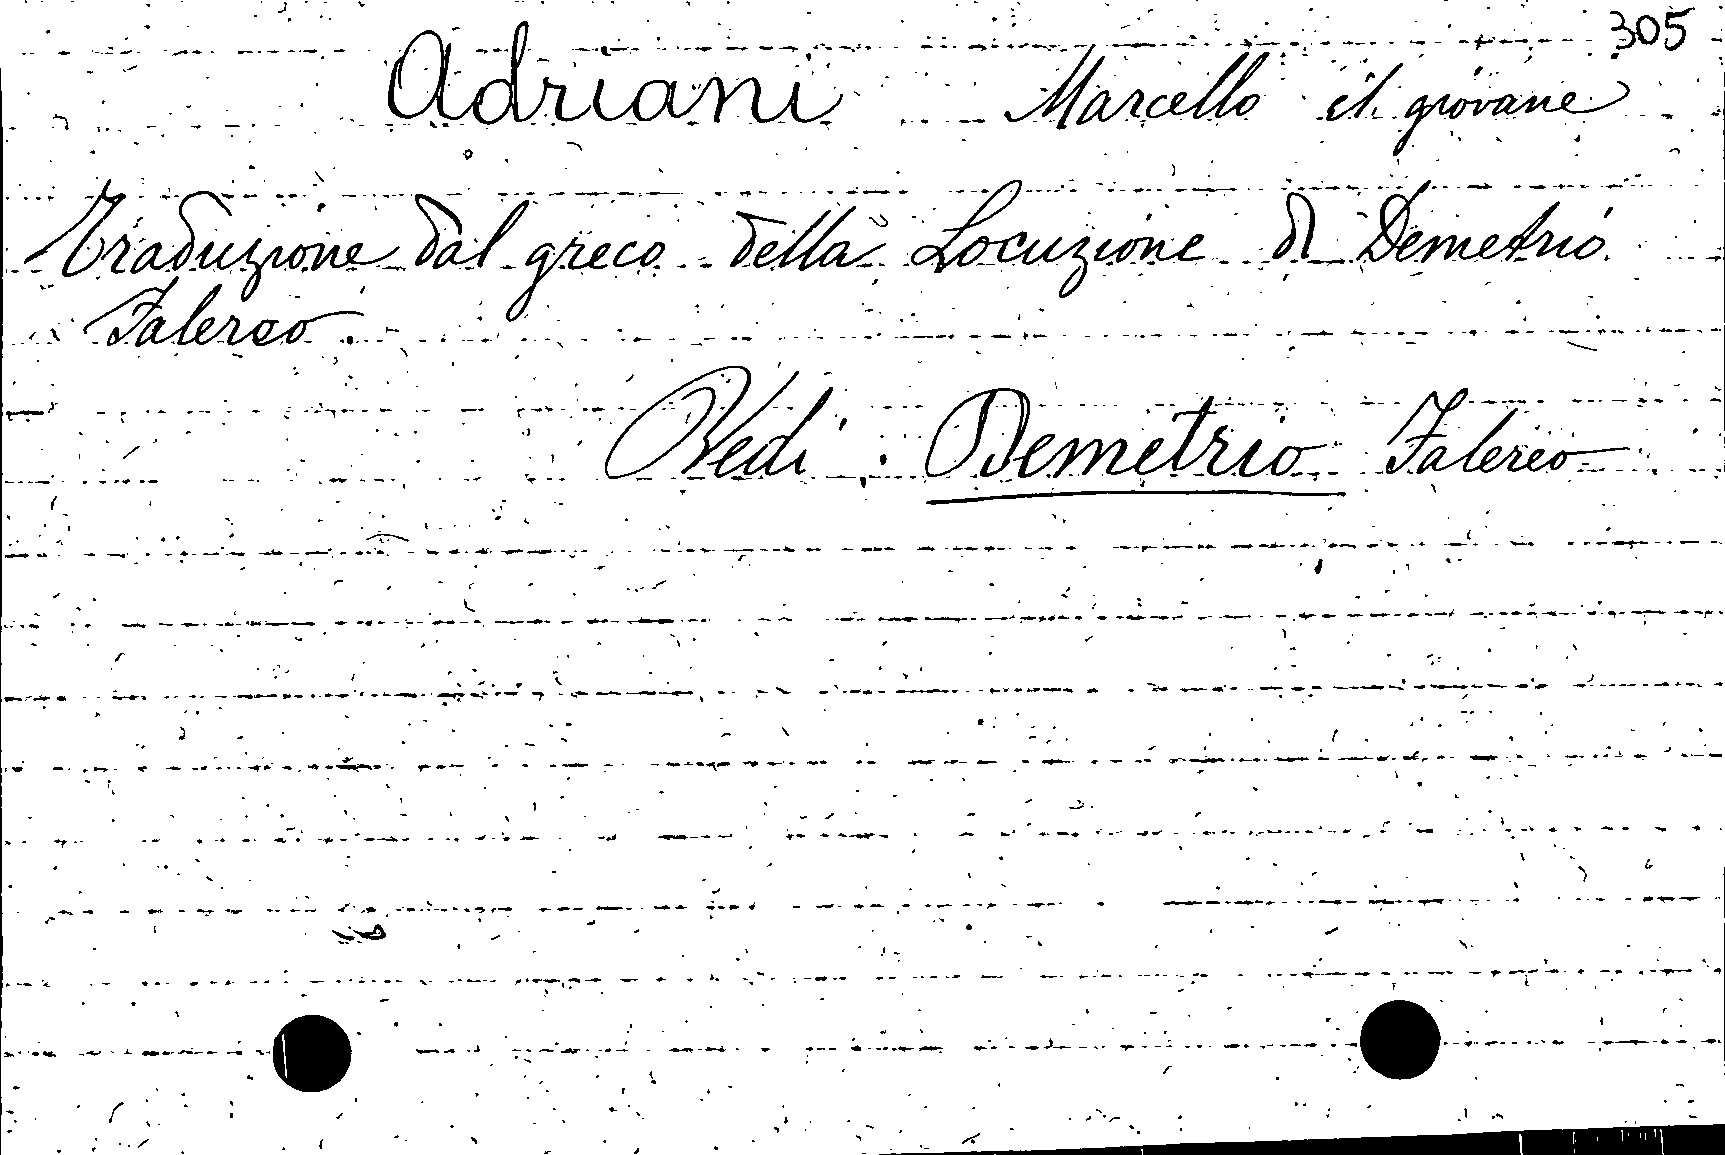 305
Adriani Marcello il giovane
Traduzione dal greco della Locuzione di Demetrio
Falereo.
Vedi: Demetrio Falereo